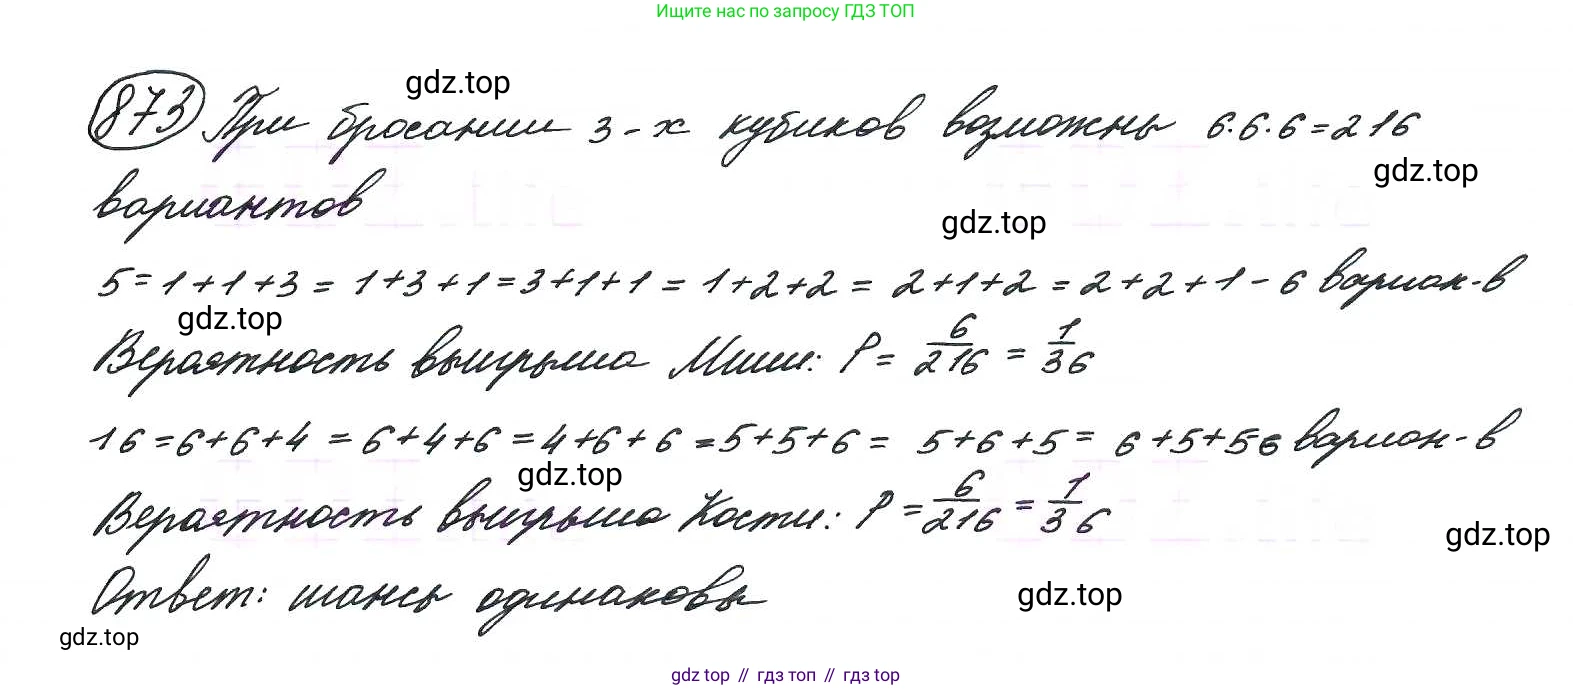 Ищите нас по запросу ГДЗ ТОП
gdz.top
873 При бросании 3-х кубиков возможны 6·6·6=216
gdz.top
вариантов
gdz.top
5=1+1+3=1+3+1=3+1+1=1+2+2=2+1+2=2+2+1-6 вариан-в
gdz.top
Вероятность выигрыша Миши: P=6/216=1/36
16=6+6+4=6+4+6=4+6+6=5+5+6=5+6+5=6+5+5-6 вариан-в
gdz.top
Вероятность выигрыша Кости: P=6/216=1/36
gdz.top
Ответ: шансы одинаковы
gdz.top
gdz.top
gdz top // гдз топ // гдз top